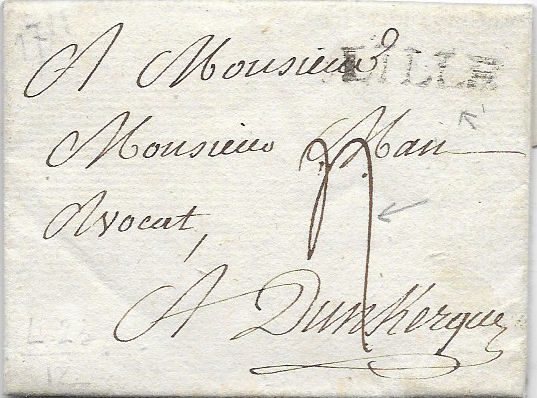 A Monsieur
LILLE
Monsieur Mair
Avocat,
A Dunkerque